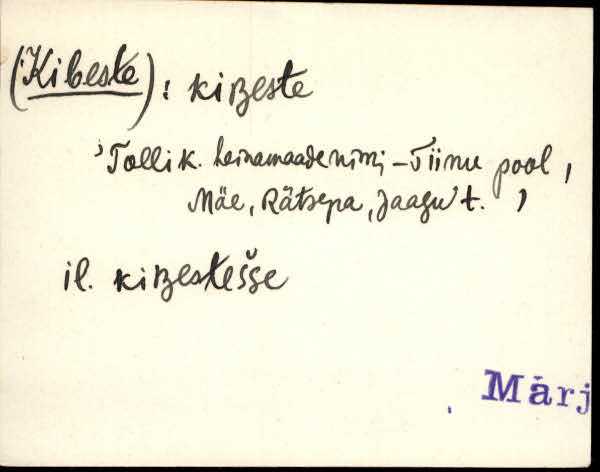 (Kibeste): kiʙeste
'Tolli k. heinamaade nimi – Tiinu pool,
Mäe, Rätsepa, Jaagu t.'
il. kiʙestešse
Märj